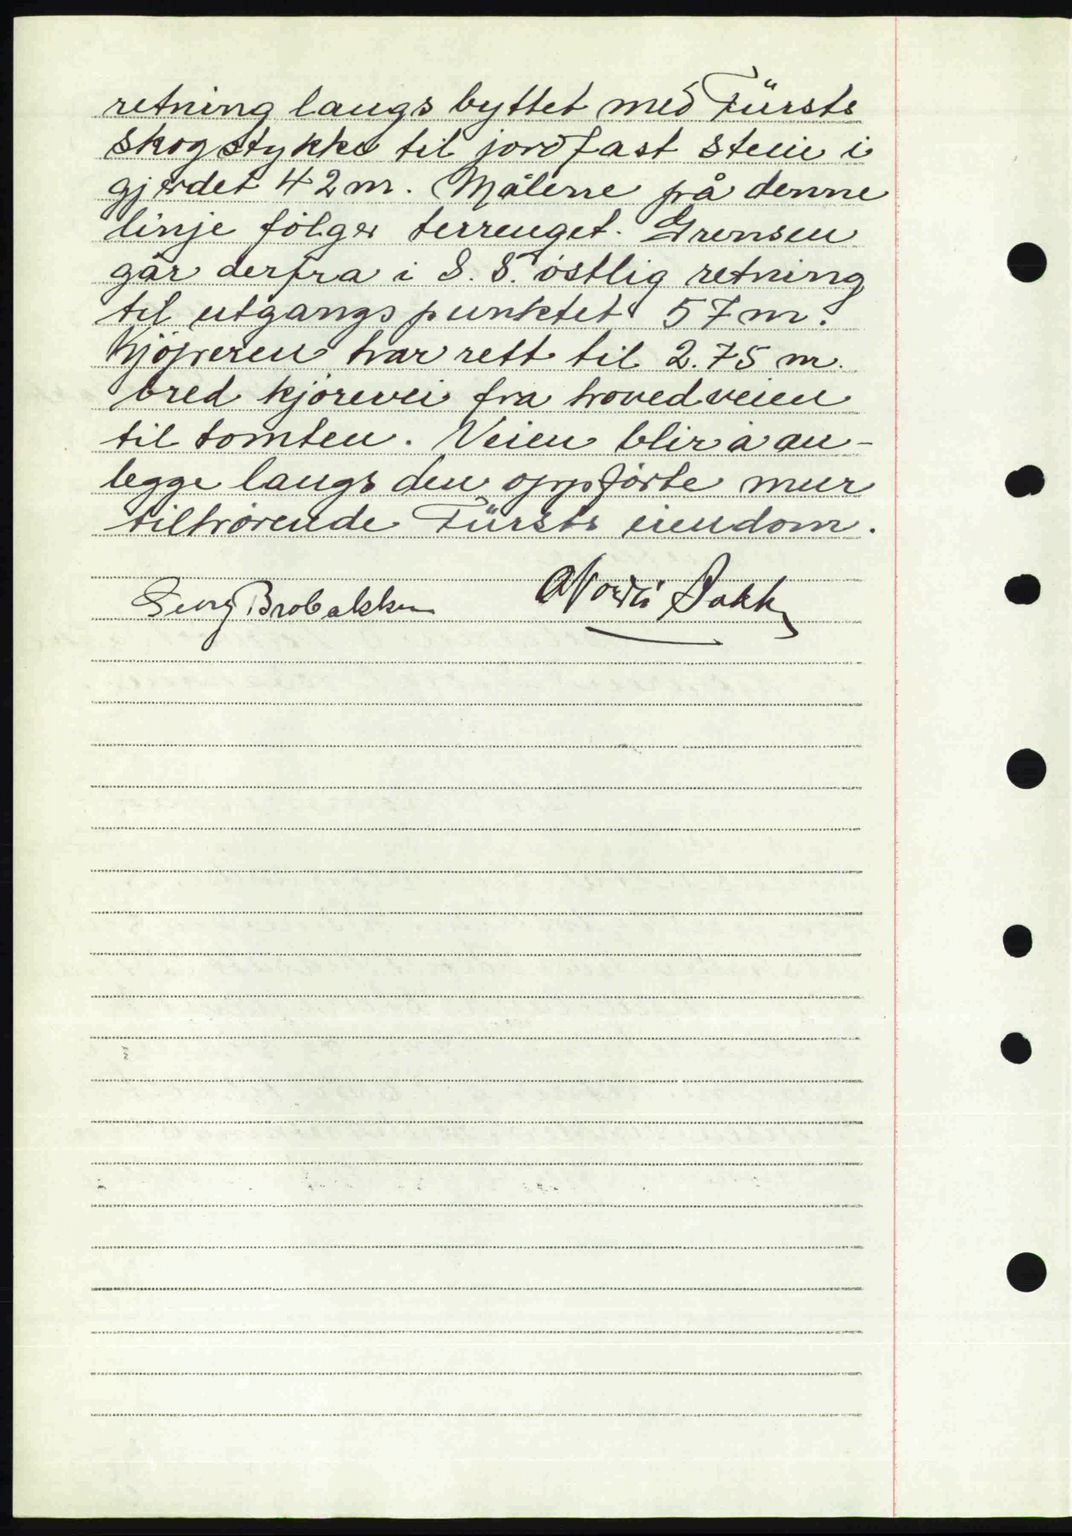 retning langs byttet med Fürsts
skogstykke til jordfast stein i
gjerdet 42 m. Målene på denne
linje følger terrenget. Grensen
går derfra i S. S. østlig retning
til utgangspunktet 57 m.
Kjøperen har rett til 2.75 m.
bred kjørevei fra hovedveien
til tomten. Veien blir å an-
legge langs den oppførte mur
tilhørende Fürsts eiendom.
Georg Brobakken